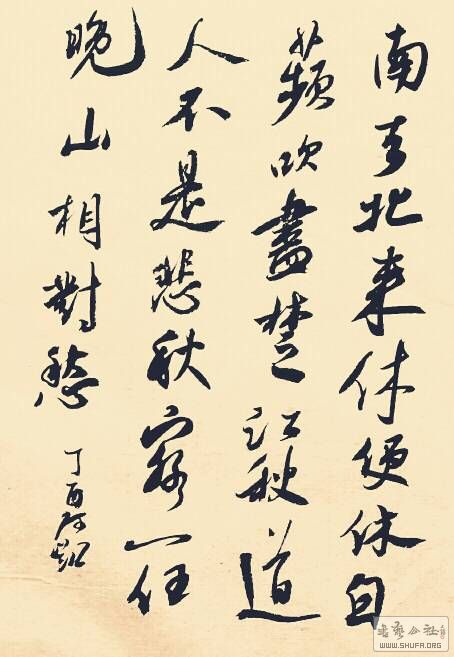 南去北来休便休白
蘋吹盡楚江秋道
人不是悲秋客一任
晚山相對愁
丁酉
書藝公社
WWW.SHUFA.ORG